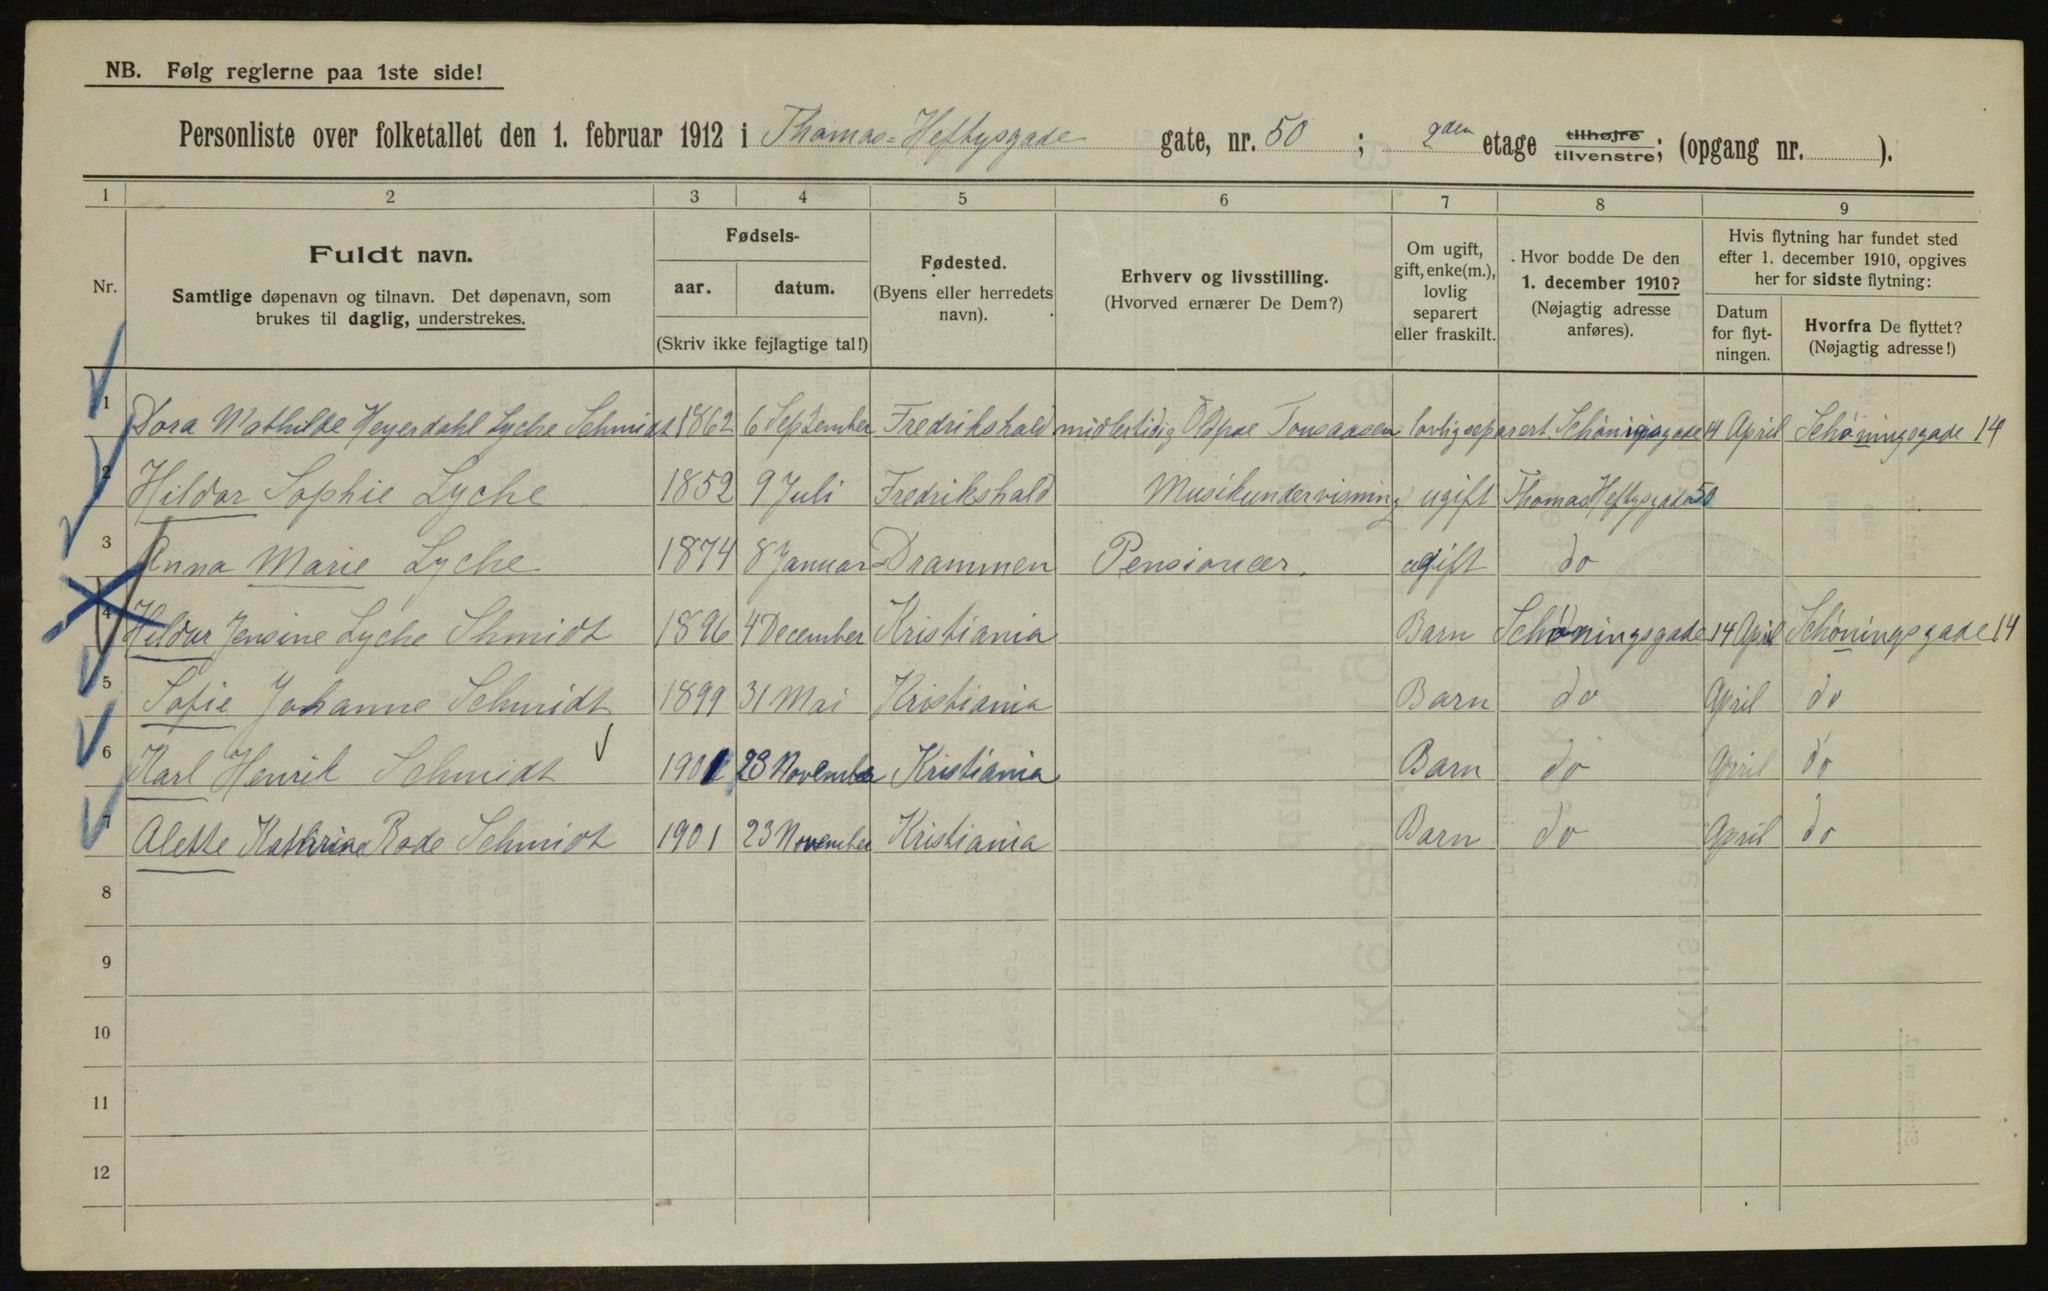 NB. Følg reglerne paa 1ste side!
Personliste over folketallet den 1. februar 1912 i Thomas-Heftysgade gate, nr. 50 ; 2den etage tilhøjre tilvenstre; (opgang nr. ).
1 2 3 4 5 6 7 8 9
Nr.
Fuldt navn.
Samtlige døpenavn og tilnavn. Det døpenavn, som
brukes til daglig, understrekes.
Fødsels-
aar. datum.
(Skriv ikke fejlagtige tal!)
Fødested.
(Byens eller herredets
navn).
Erhverv og livsstilling.
(Hvorved ernærer De Dem?)
Om ugift,
gift, enke(m.),
lovlig
separert
eller fraskilt.
Hvor bodde De den
1. december 1910?
(Nøjagtig adresse
anføres).
Hvis flytning har fundet sted
efter 1. december 1910, opgives
her for sidste flytning:
Datum
for flyt-
ningen.
Hvorfra De flyttet?
(Nøjagtig adresse!)
1 Dora Mathilde Heyerdahl Lyche Schmidt 1862 6 September Fredrikshald midlertidig Tonsaasen lovlig separert Schöningsgade 14 April Schöningsgade 14
2 Hildor Sophie Lyche 1852 9 Juli Fredrikshald Musikundervisning ugift Thomas Heftysgade 50
3 Anna Marie Lyche 1874 8 Januar Drammen Pensioncer. ugift do
4 Hildur Jensine Lyche Shmidt 1896 4 December Kristiania Barn Schöningsgade 14 April Schöningsgade 14
5 Sofie Johanne Schmidt 1899 31 Mai Kristiania Barn do April do
6 Karl Henrik Schmidt 1901 23 November Kristiania Barn do April do
7 Alette Kathrine Rode Schmidt 1901 23 November Kristiania Barn do April do
8
9
10
11
12